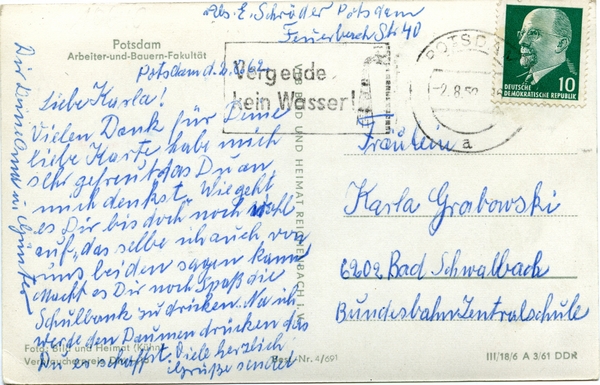 Abs. E. Schröder Potsdam
Feuerbach Str. 40
Potsdam
Arbeiter-und-Bauern-Fakultät
Potsdam d. 2.8.62
Liebe Karla!
Vielen Dank für Deine
liebe Karte habe mich
sehr gefreut das Du an
mich denkst. Wie geht
es Dir bis doch noch wohl
auf, das selbe ich auch von
uns beiden sagen kann
Macht es Dir noch Spaß die
Schulbank zu drücken. Na ich
werde den Daumen drücken das
Du es schaffst. Viele herzlich
Grüße sendet
Dir
Günter
Vergeude
kein Wasser!
POTSDAM
-2.8.62
a
10
DEUTSCHE
DEMOKRATISCHE REPUBLIK
BILD UND HEIMAT REICHENBACH i. V.
Fräulein
Karla Grabowski
6202 Bad Schwalbach
Bundesbahn Zentralschule
Foto: Bild und Heimat
Verbraucherpreis
Best.-Nr. 4/691
III/18/6 A 3/61 DDR